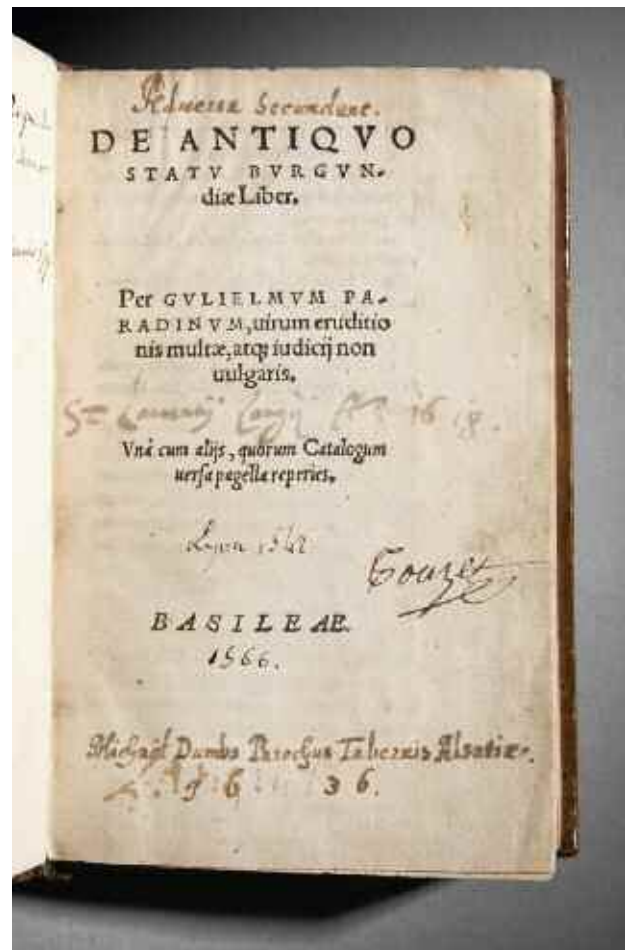 Secundae.
DE ANTIQVO
STATV BVRGVN-
diæ Liber.
Per GVLIELMVM PA-
RADINVM, uirum eruditio
nis multæ, atq; iudicij non
uulgaris.
1618.
Vnà cum alijs, quorum Catalogum
uersa pagella reperies.
Lyon 1542
BASILEAE.
1566.
Michael Dambs Parochus Tabernis Alsatiæ.
1636.